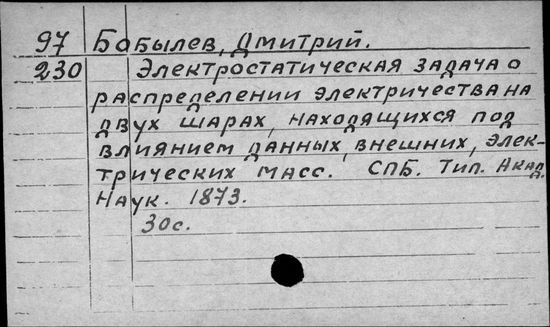 97 Бобылев, Дмитрий.
230 Электростатическая задача о
распределении электричества на
двух шарах, находящихся под
влиянием данных, внешних, элек-
трических масс. СПБ. Тип. Акад.
Наук. 1873.
30с.